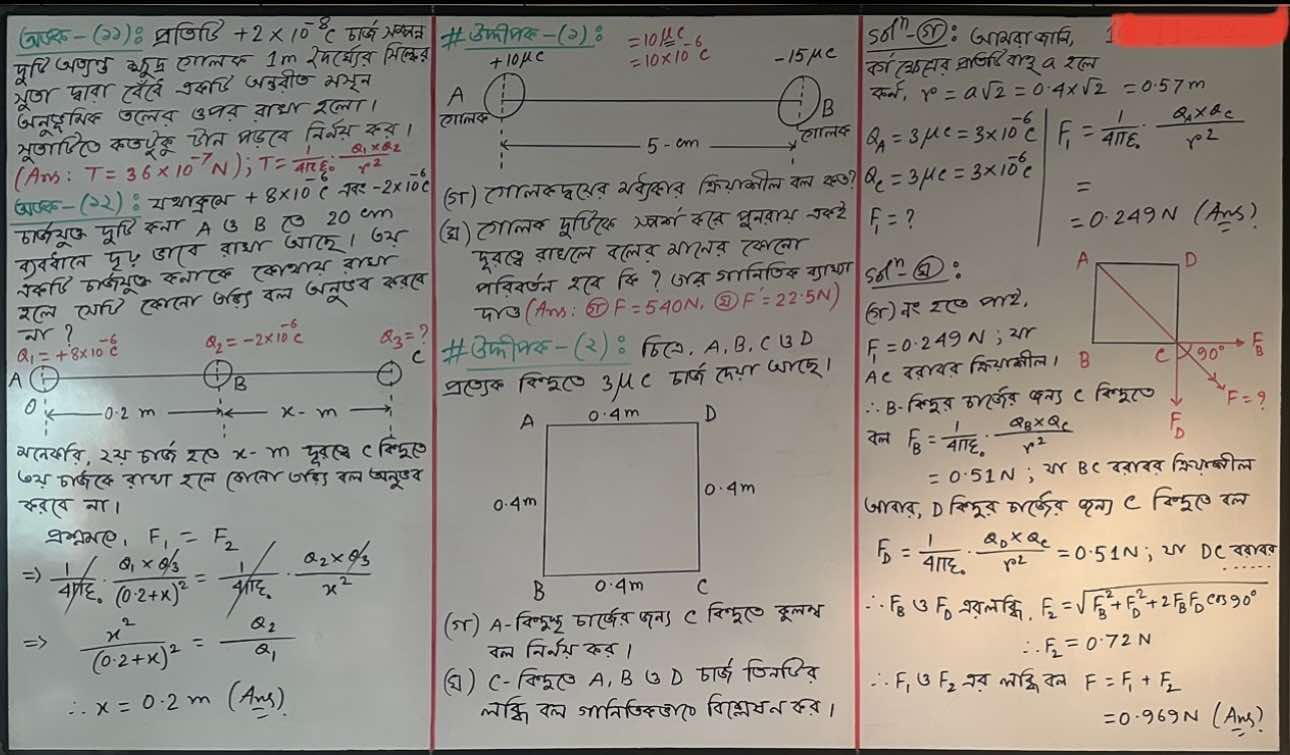 অংক-(১১): প্রতিটি +2×10⁻⁸C চার্জ সম্পন্ন
দুটি অত্যন্ত ক্ষুদ্র গোলক 1m দৈর্ঘ্যের সিল্কের
সুতা দ্বারা বেঁধে একটি অন্তরীত মসৃন
অনুভূমিক তলের ওপর রাখা হলো।
সুতাটিতে কতটুকু টান পড়বে নির্নয় কর।
(Ans: T = 36×10⁻⁷N); T = 1/4π∈₀ · Q₁×Q₂/r²
অংক-(১২): যথাক্রমে +8×10⁻⁶C এবং -2×10⁻⁶C
চার্জযুক্ত দুটি কনা A ও B তে 20 cm
ব্যবধানে দৃঢ় ভাবে রাখা আছে। ৩য়
একটি চার্জযুক্ত কনাকে কোথায় রাখা
হলে সেটি কোনো তড়িৎ বল অনুভব করবে
না?
Q₁ = +8×10⁻⁶C Q₂ = -2×10⁻⁶C Q₃ = ?
A B C
O 0.2 m x-m
মনেকরি, ২য় চার্জ হতে x-m দূরত্বে C বিন্দুতে
৩য় চার্জকে রাখা হলে কোনো তড়িৎ বল অনুভব
করবে না।
প্রশ্নমতে, F₁ = F₂
⇒ 1/4π∈₀ · Q₁×Q₃/(0.2+x)² = 1/4π∈₀ · Q₂×Q₃/x²
⇒ x²/(0.2+x)² = Q₂/Q₁
∴ x = 0.2 m (Ans)
# উদ্দীপক-(১):
= 10μC
= 10×10⁻⁶
+10μC -15μC
A B
গোলক গোলক
5-cm
(গ) গোলকদ্বয়ের মধ্যকার ক্রিয়াশীল বল কত?
(ঘ) গোলক দুটিকে স্পর্শ করে পুনরায় একই
দূরত্বে রাখলে বলের মানের কোনো
পরিবর্তন হবে কি? তার গানিতিক ব্যাখ্যা
দাও (Ans: (গ) F = 540N, (ঘ) F′ = 22.5N)
# উদ্দীপক-(২): চিত্রে, A, B, C ও D
প্রত্যেক বিন্দুতে 3μC চার্জ দেয়া আছে।
0.4m
A D
0.4m 0.4m
B C
0.4m
(গ) A-বিন্দুস্থ চার্জের জন্য C বিন্দুতে কুলম্ব
বল নির্নয় কর।
(ঘ) C-বিন্দুতে A, B ও D চার্জ তিনটির
লব্ধি বল গানিতিকভাবে বিশ্লেষন কর।
solⁿ-(গ): আমরা জানি,
বর্গক্ষেত্রের প্রতিটি বাহু a হলে
কর্ন, r = a√2 = 0.4×√2 = 0.57m
Q_A = 3μC = 3×10⁻⁶C
Q_C = 3μC = 3×10⁻⁶C
F₁ = ?
F₁ = 1/4π∈₀ · Q_A×Q_C/r²
=
= 0.249N (Ans)
solⁿ-(ঘ):
(গ) নং হতে পাই,
F₁ = 0.249 N; যা
AC বরাবর ক্রিয়াশীল।
A D
B C 90° F_B
F = ?
F_D
∴ B-বিন্দুর চার্জের জন্য C বিন্দুতে
বল F_B = 1/4π∈₀ · Q_B×Q_C/r²
= 0.51N; যা BC বরাবর ক্রিয়াশীল
আবার, D বিন্দুর চার্জের জন্য C বিন্দুতে বল
F_D = 1/4π∈₀ · Q_D×Q_C/r² = 0.51N; যা DC বরাবর
......
∴ F_B ও F_D এর লব্ধি, F₂ = √(F_B² + F_D² + 2F_B F_D cos90°)
∴ F₂ = 0.72 N
∴ F₁ ও F₂ এর লব্ধি বল F = F₁ + F₂
= 0.969N (Ans)